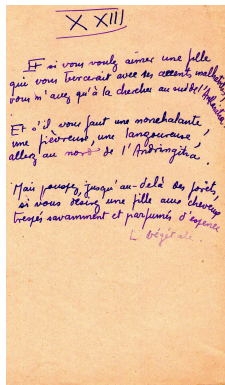 XXIII
Et si vous voulez aimer une fille
qui vous bercerait avec ses accents malhabiles,
vous n'avez qu'à la chercher au sud de l'Ankaratra.
Et s'il vous faut une nonchalante,
une fiévreuse, une langoureuse,
allez au nord de l'Andringitra.
Mais poussez jusqu'au-delà des forêts,
si vous désirez une fille aux cheveux
tressés savamment et parfumés d'essence
végétale.